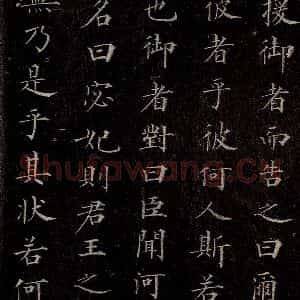 援御者而告之曰爾
彼者乎彼何人斯若
也御者對曰臣聞河
名曰宓妃則君王之
無乃是乎其狀若何
Shufawang.Cn